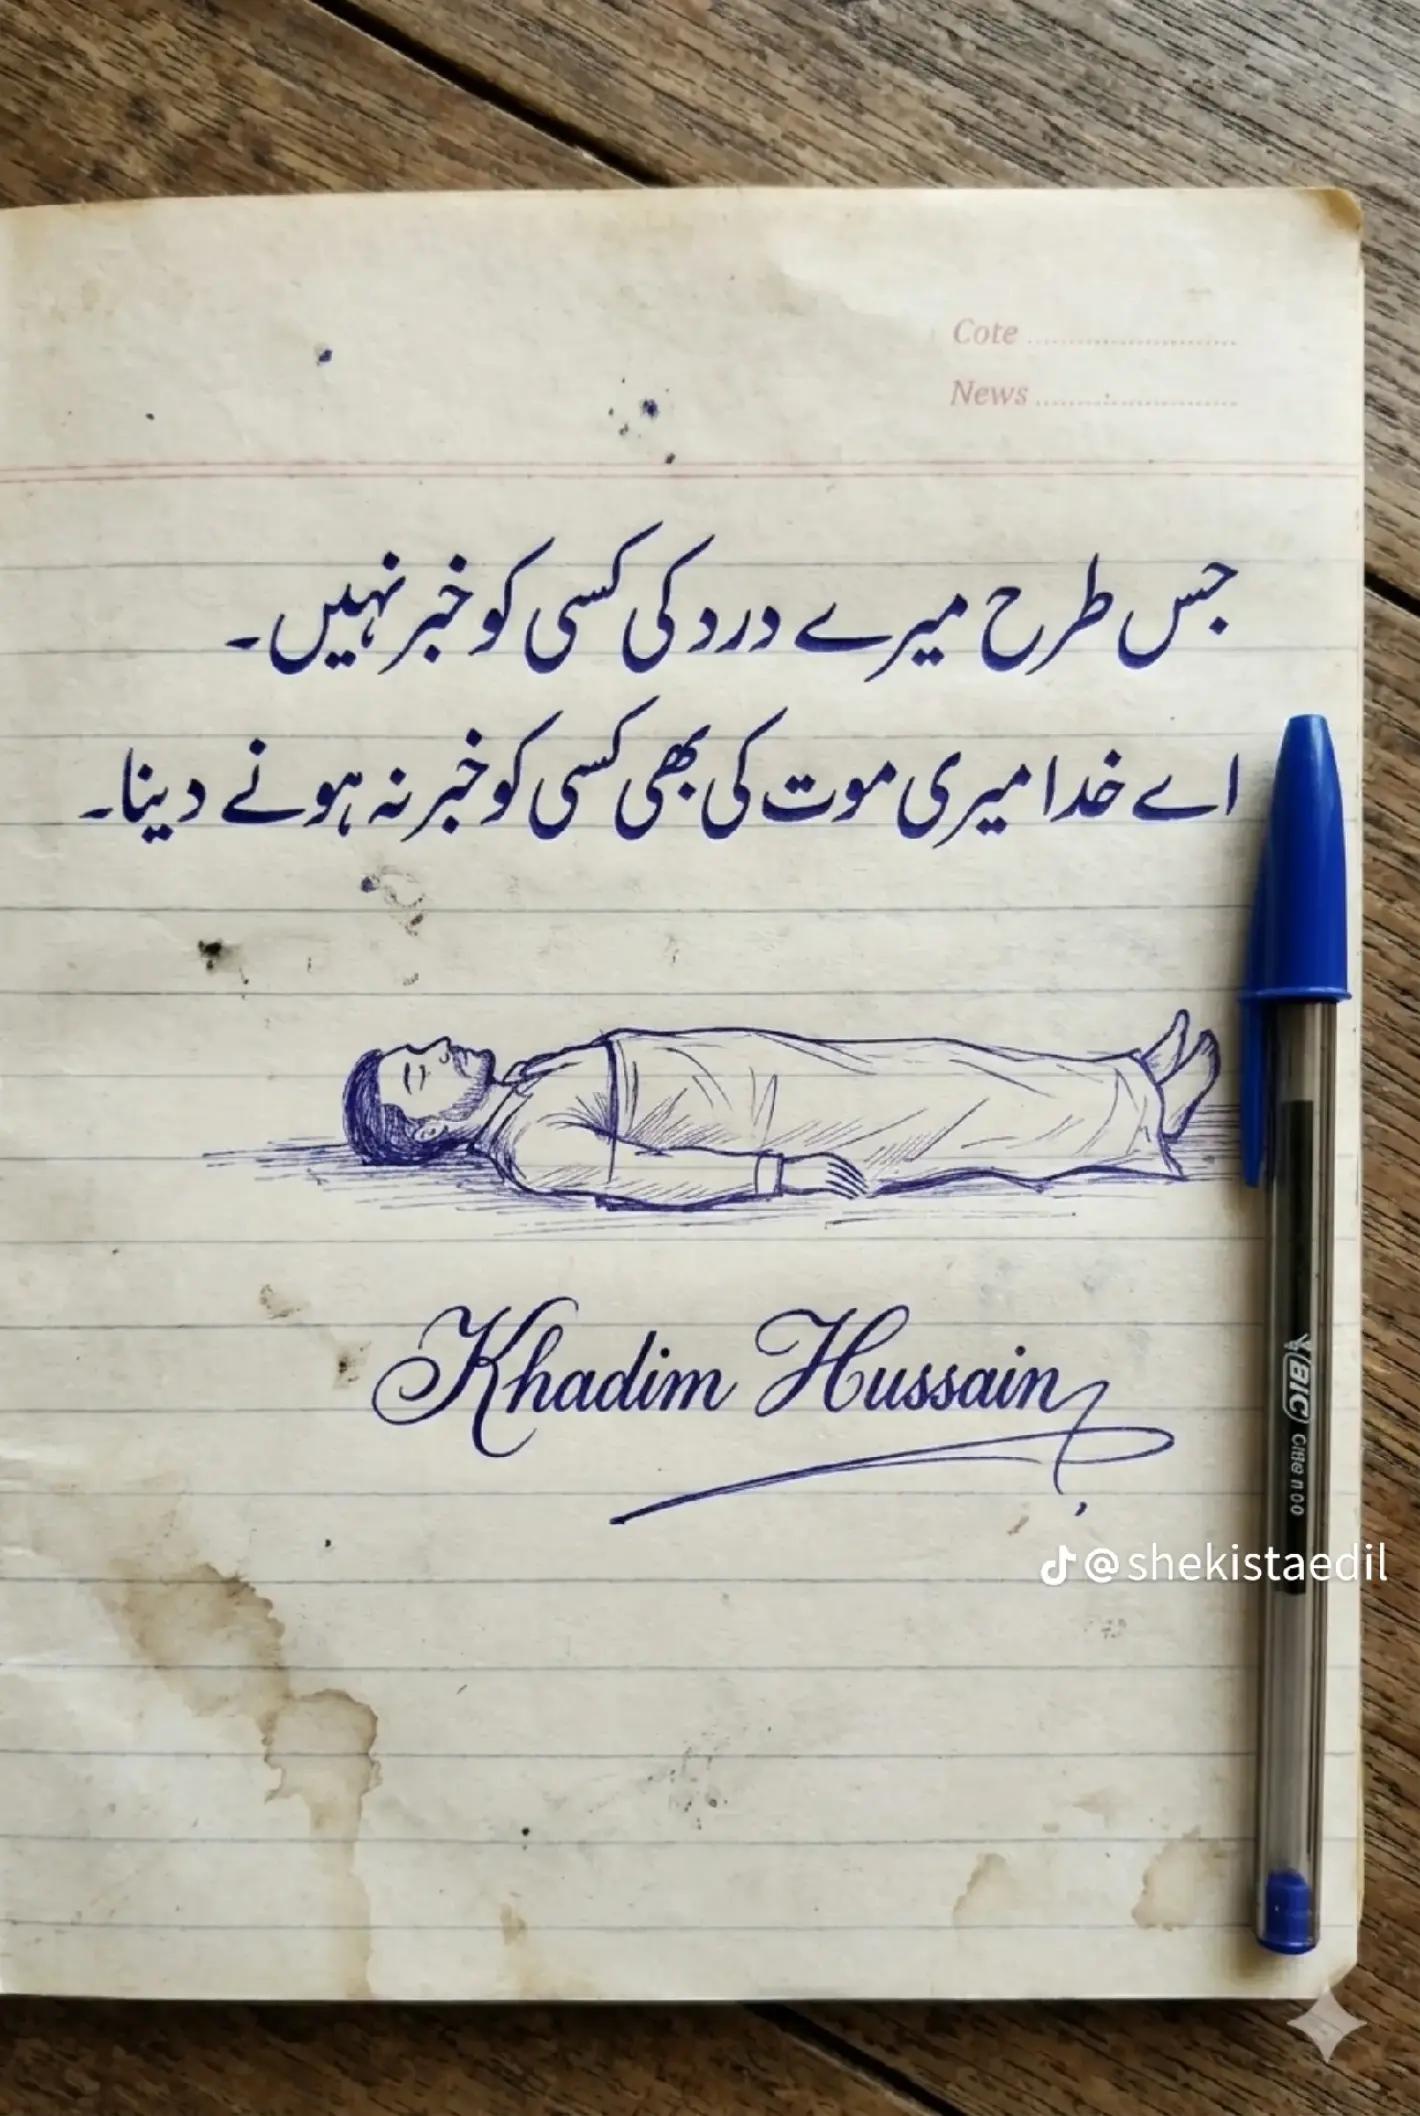 Cote ........................
News ........................
جس طرح میرے درد کی کسی کو خبر نہیں۔
اے خدا میری موت کی بھی کسی کو خبر نہ ہونے دینا۔
Khadim Hussain
BIC
@shekistaedil